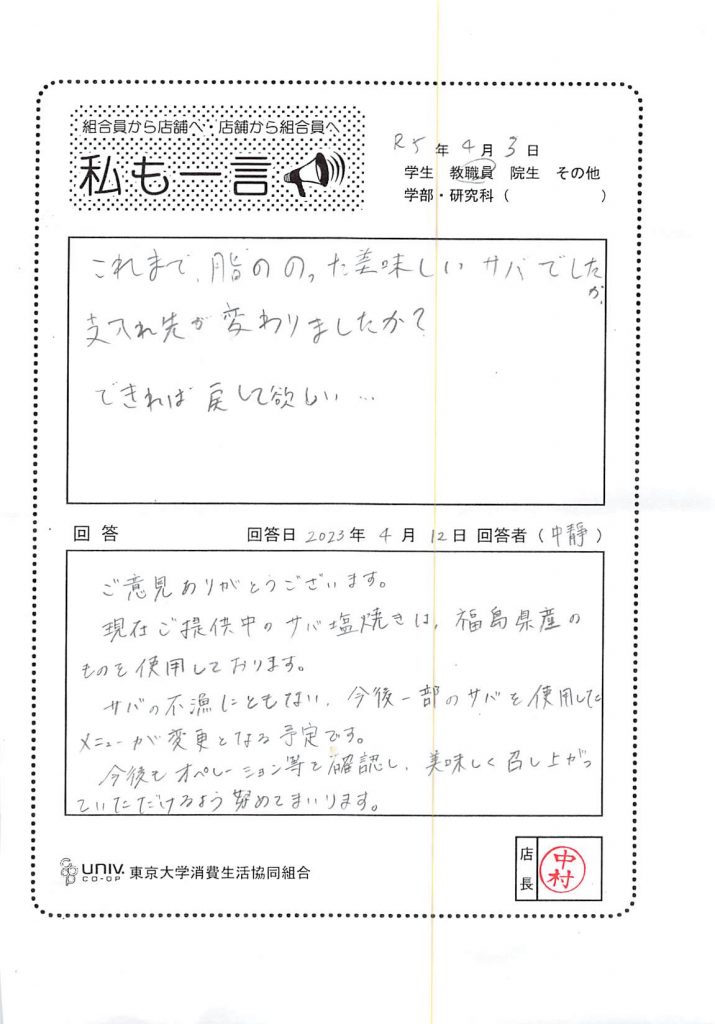 組合員から店舗へ・店舗から組合員へ
私も一言
R5年4月3日
学生 教職員 院生 その他
学部・研究科（ ）
これまで、脂ののった美味しいサバでしたが、
支入れ先が変わりましたか？
できれば戻して欲しい…
回答 回答日 2023年4月12日 回答者（中靜）
ご意見ありがとうございます。
現在ご提供中のサバ塩焼きは、福島県産の
ものを使用しております。
サバの不漁にともない、今後一部のサバを使用した
メニューが変更となる予定です。
今後もオペレーション等を確認し、美味しく召し上がっ
ていただけるよう努めてまいります。
UNIV.
CO-OP
東京大学消費生活協同組合
店長
中村